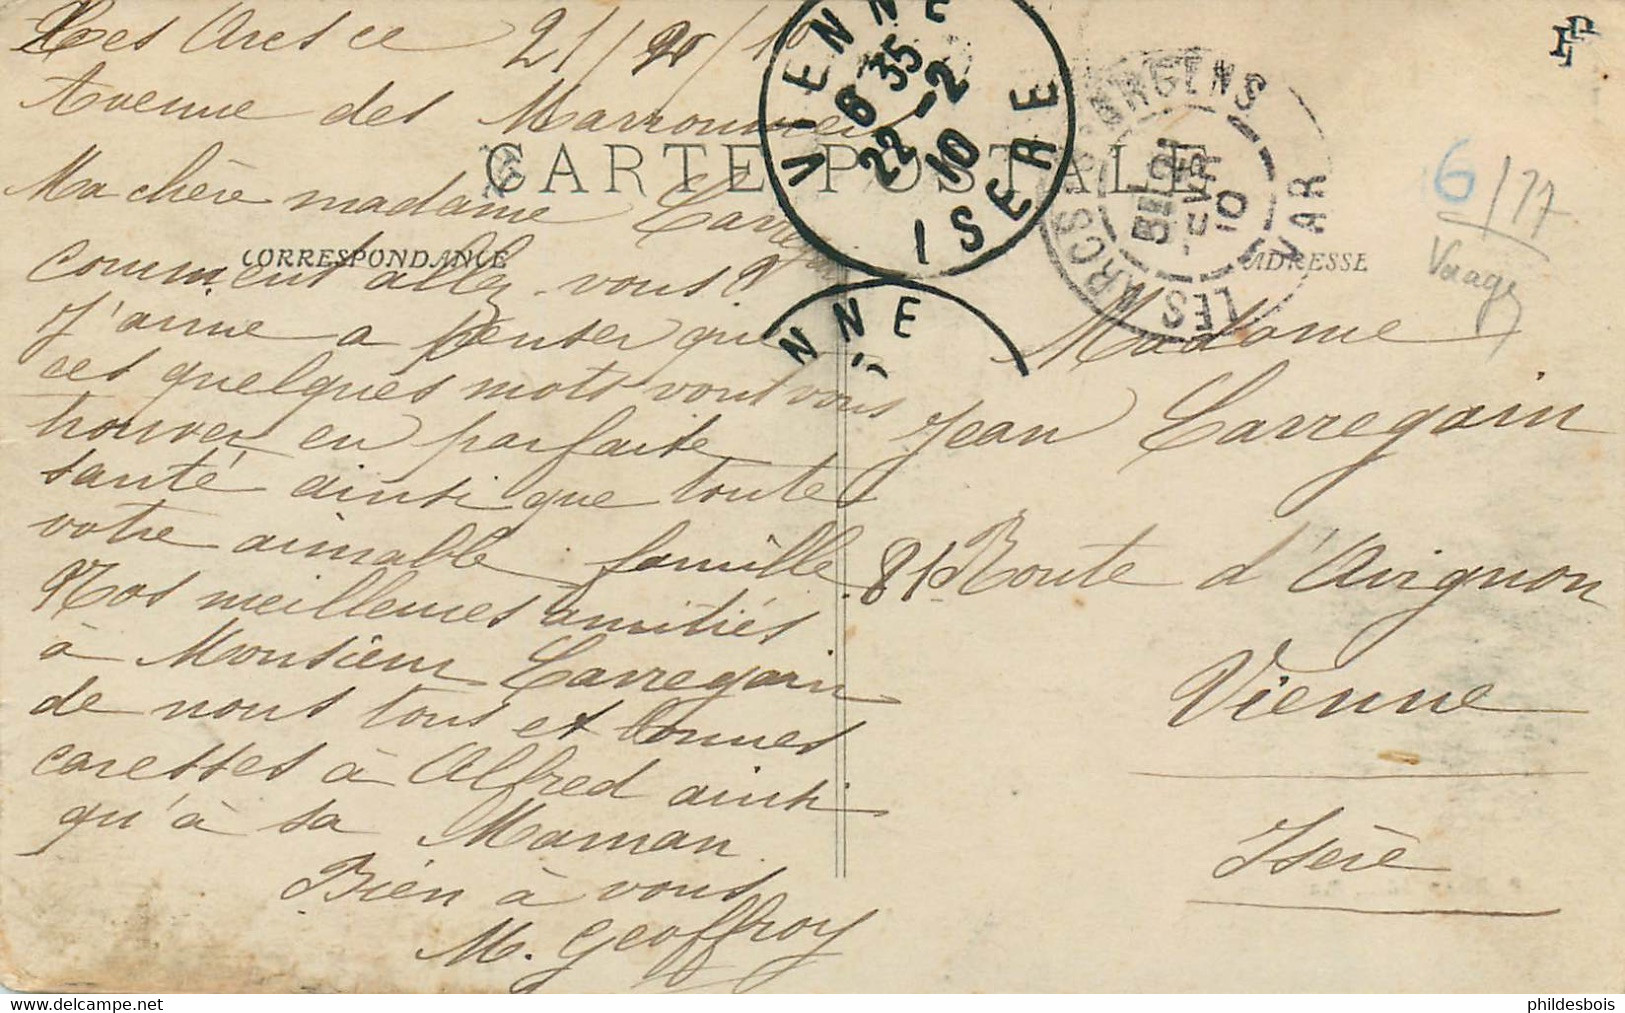 Les Arcs ce 21/2/10
Avenue des Marronniers
CARTE POSTALE
Ma chère madame Carregain
CORRESPONDANCE
comment allez-vous?
J'aime a penser que
ces quelques mots vont vous
trouver en parfaite
santé ainsi que toute
votre aimable famille.
Nos meilleures amitiés
à Monsieur Carregain
de nous tous et bonnes
caresses à Alfred ainsi
qu'à sa Maman
Bien à vous
M. Geoffroy
VIENNE
6 35
22 - 2
10
ISERE
NNE
LES ARCS S ARGENS
VAR
10
6/17
ADRESSE
Madame
Jean Carregain
81 Route d'Avignon
Vienne
Isère
phildesbois